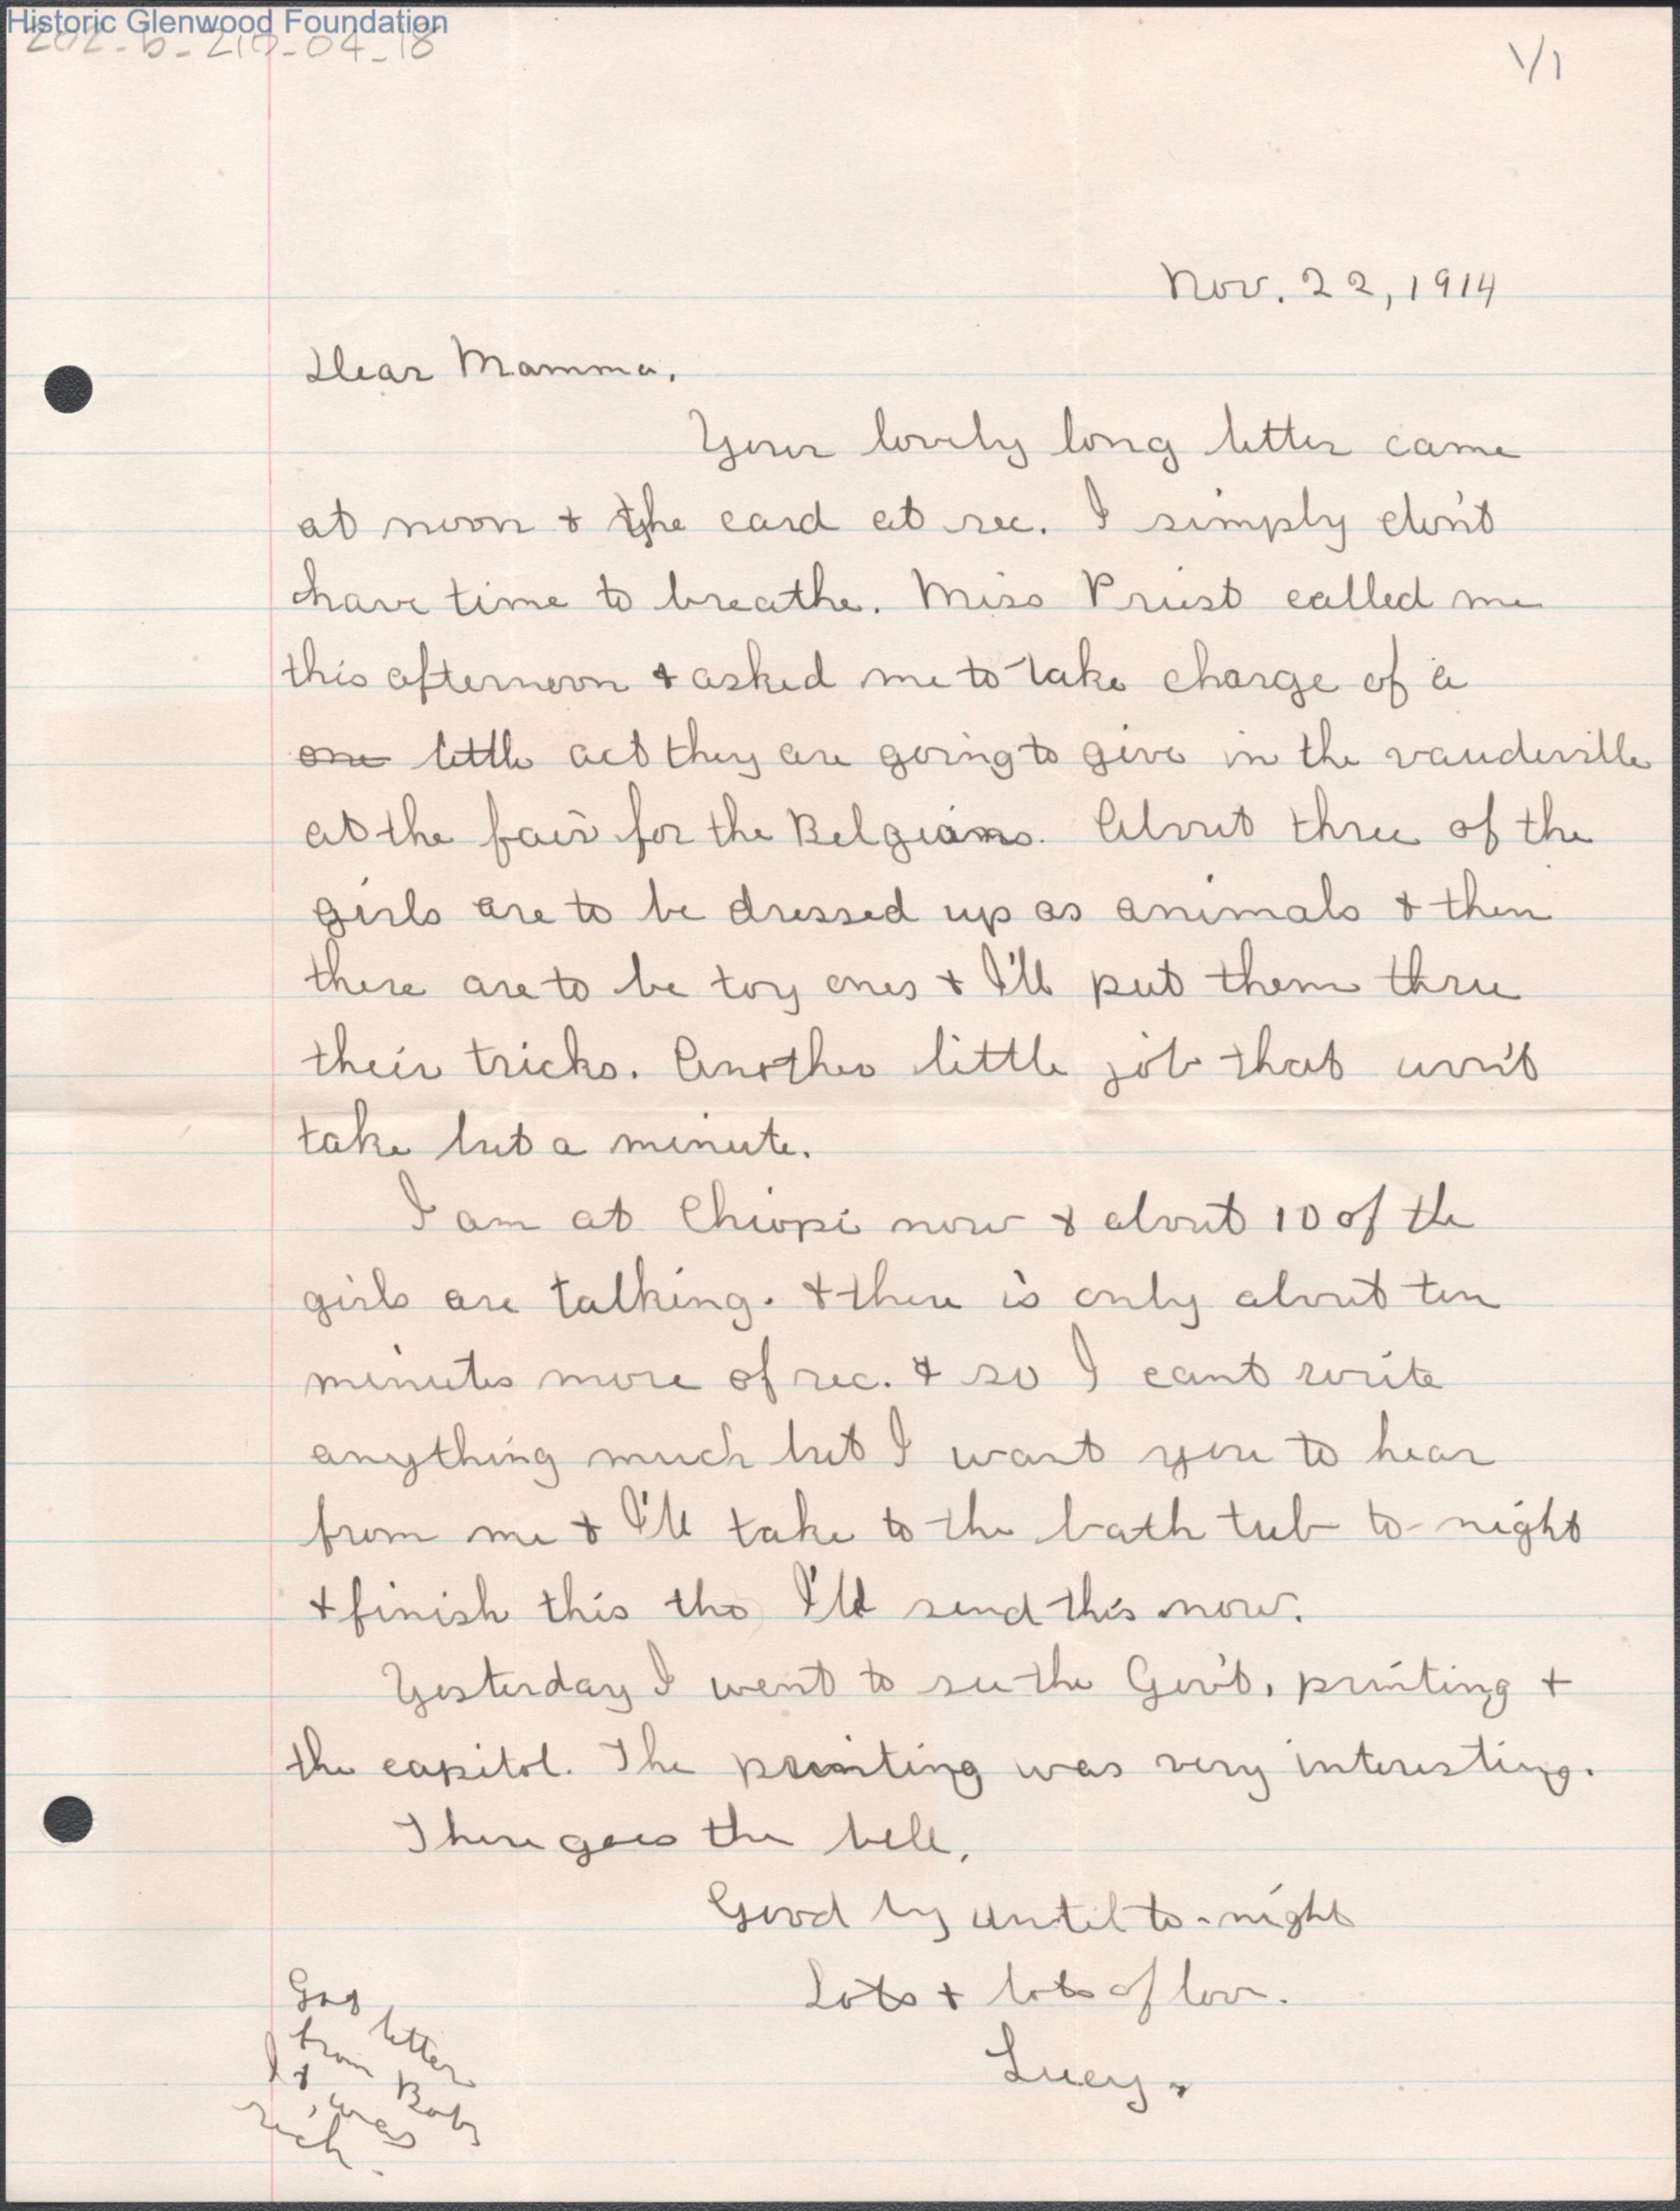 Historic Glenwood Foundation
202-b-210-04-18
1/1
Nov. 22, 1914
Dear Mamma,
Your lovely long letter came
at noon + the card at rec. I simply don't
have time to breathe. Miss Priest called me
this afternoon + asked me to take charge of a
one little act they are going to give in the vaudeville
at the fair for the Belgians. About three of the
girls are to be dressed up as animals + then
there are to be toy ones + I'll put them thru
their tricks. Another little job that won't
take but a minute.
I am at Chiopi now + about 10 of the
girls are talking. + there is only about ten
minutes more of rec. + so I cant write
anything much but I want you to hear
from me + I'll take to the bath tub to-night
+ finish this tho I'll send this now.
Yesterday I went to see the Gov't. printing +
the capitol. The printing was very interesting.
There goes the bell.
Good by until to-night
Lots + lots of love.
Lucy.
Got letter
from Baby
It was
rich.